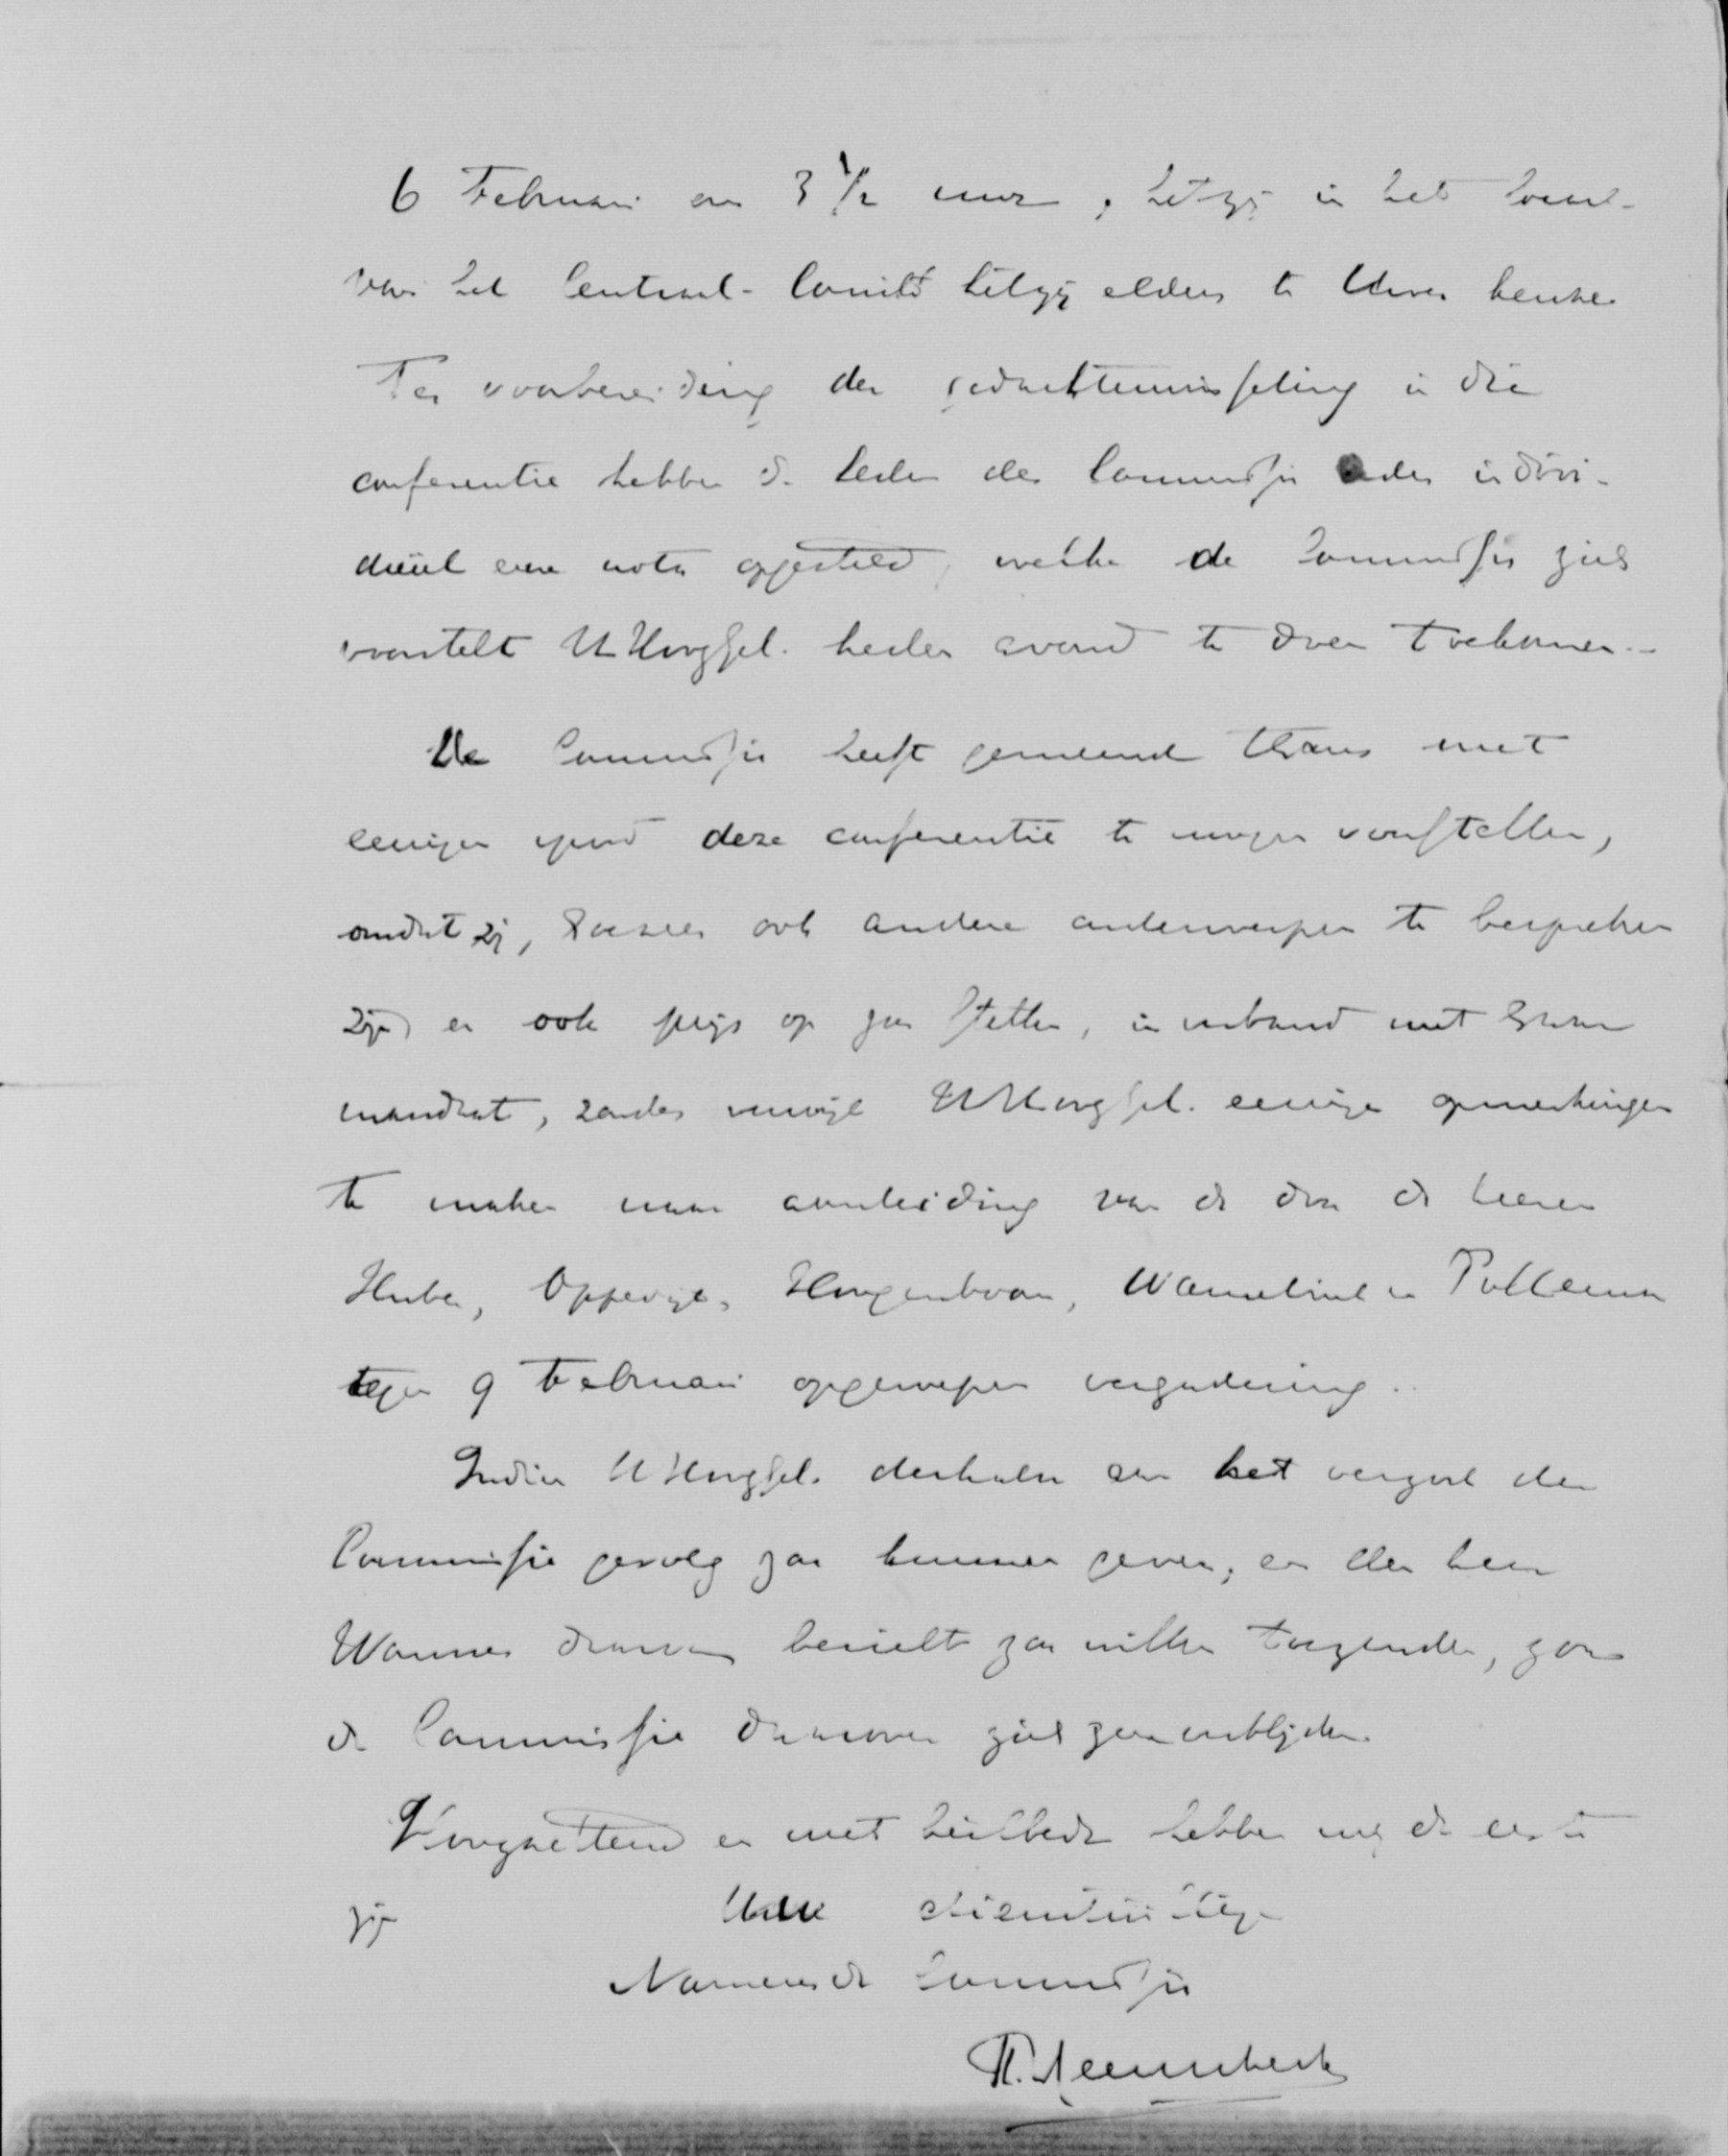 6 Februari om 3 1/2 uur, hetzij in het lokaal
van het Centraal-Comité hetzij elders te Uwer keuze
Ter voorbereiding der gedachtenwisseling in die
conferentie hebben de leden der Commissie ieder indivi-
dueel eene nota opgesteld, welke de Commissie zich
voorstelt UHoogGel. heden avond te doen toekomen.
De Commissie heeft gemeend thans met
eenigen spoed deze conferentie te mogen voorstellen,
omdat zij, daar er ook andere onderwerpen te bespreken
zijn en ook prijs op zou stellen, in verband met haar
mandaat, zonder verwijl UHoogGel. eenige opmerkingen
te maken naar aanleiding van de door de heeren
Huber, Oppedijk, Hoogenboom, Wamelink en Pollema
tegen 9 Februari opgeroepen vergadering.
Indien UHoogGel. derhalve aan het verzoek der
Commissie gevolg zou kunnen geven, en den heer
Wannee daarvan bericht zou willen toezenden, zou
de Commissie daarover zich zeer verblijden.
Hoogachtend en met heilbede hebben wij de eer te
zijn Uwe dienstwillige
Namens de Commissie